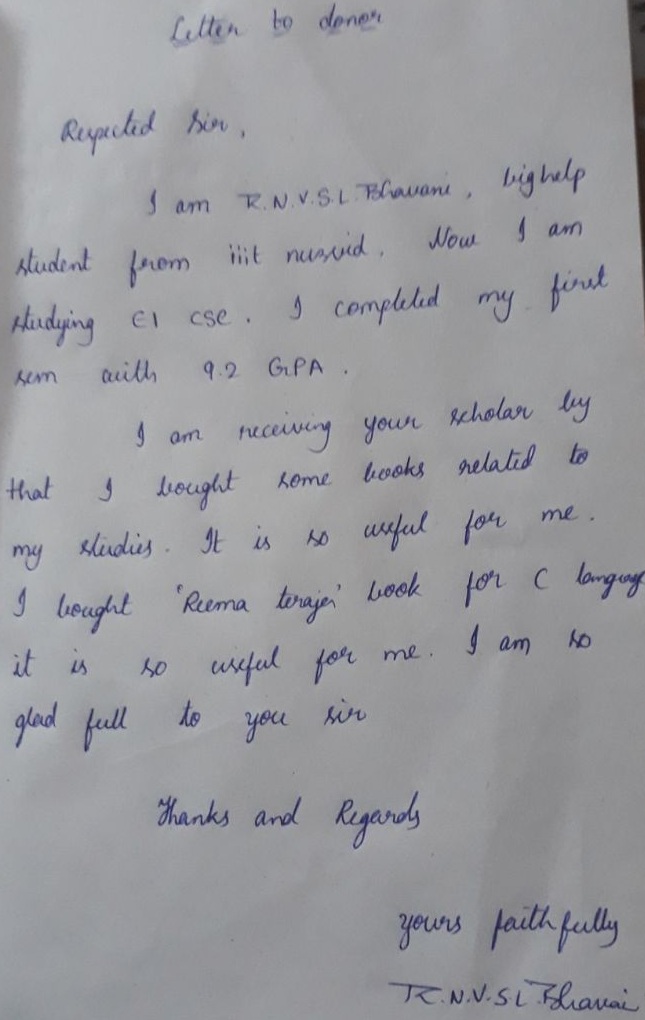 Letter to donor
Respected Sir,
I am R.N.V.S.L.Bhavani, bighelp
student from iiit nuzvid. Now I am
studying E1 CSE. I completed my first
sem with 9.2 GPA.
I am receiving your scholar by
that I bought some books related to
my studies. It is so useful for me.
I bought 'Reema terajer' book for C language
it is so useful for me. I am so
glad full to you sir
Thanks and Regards
yours faithfully
R.N.V.S.L.Bhavai